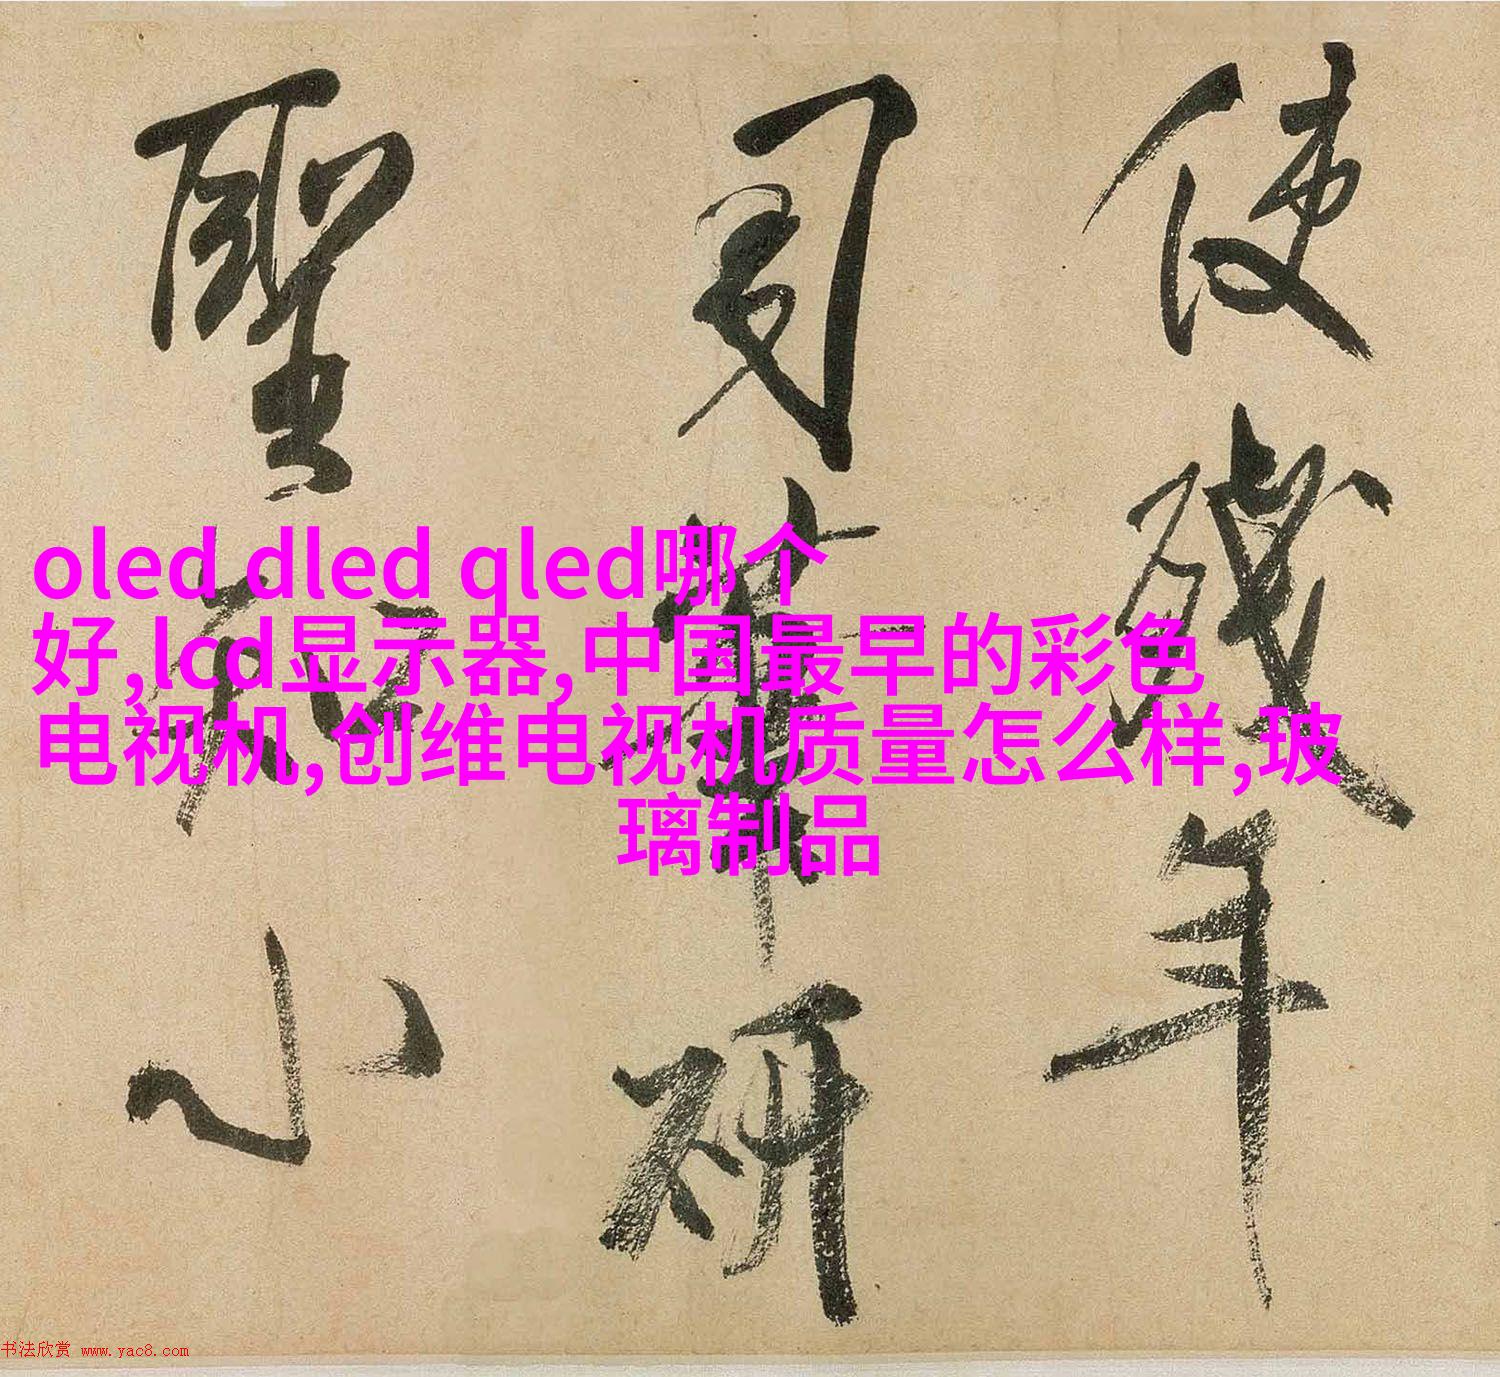 使残年
司笔研
圣
小
oled dled qled哪个
好,lcd显示器,中国最早的彩色
电视机,创维电视机质量怎么样,玻
璃制品
书法欣赏 www.yac8.com